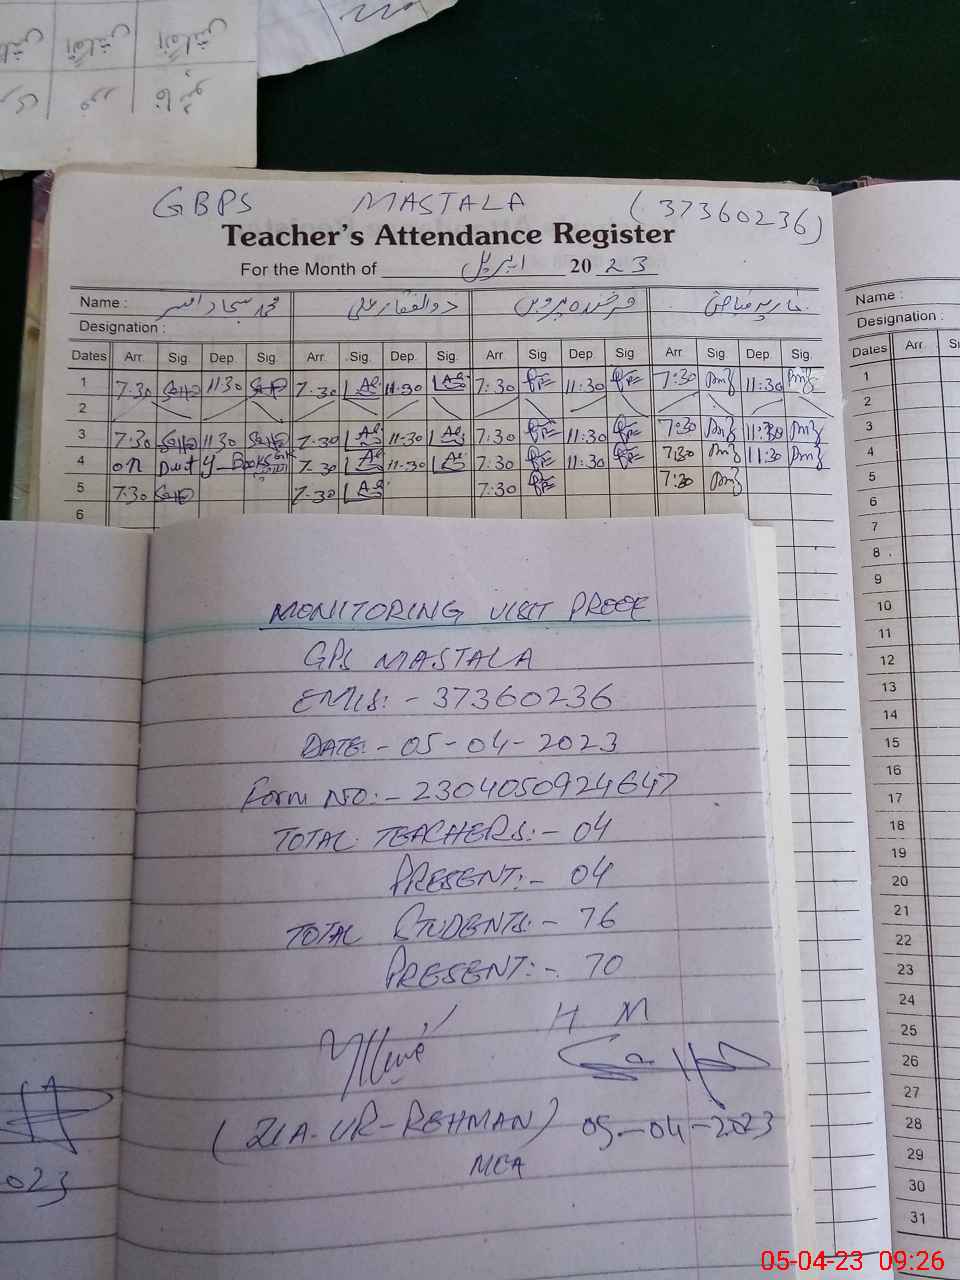 GBPS MASTALA (37360236)
Teacher's Attendance Register
For the Month of اپریل 2023
Name : محمد سجاد افسر ذوالفقار علی فرخندہ پروین
Designation :
Dates Arr. Sig. Dep. Sig. Arr. Sig. Dep. Sig. Arr. Sig. Dep. Sig. Arr. Sig. Dep. Sig.
1 7:30 11:30 7:30 11:30 7:30 11:30 7:30 11:30
2
3 7:30 11:30 7:30 11:30 7:30 11:30 7:30 11:30
4 on Duty Books 7:30 11:30 7:30 11:30 7:30 11:30
5 7:30 7:30 7:30 7:30
6
Name :
Designation :
Dates Arr.
1
2
3
4
5
6
7
8
9
10
11
12
13
14
15
16
17
18
19
20
21
22
23
24
25
26
27
28
29
30
31
MONITORING VISIT PROOF
GPS MASTALA
EMIS:- 37360236
DATE:- 05-04-2023
Form NO:- 2304050924647
TOTAL TEACHERS:- 04
PRESENT:- 04
TOTAL STUDENTS:- 76
PRESENT:- 70
H M
(ZIA-UR-REHMAN) 05-04-2023
MEA
023
05-04-23 09:26